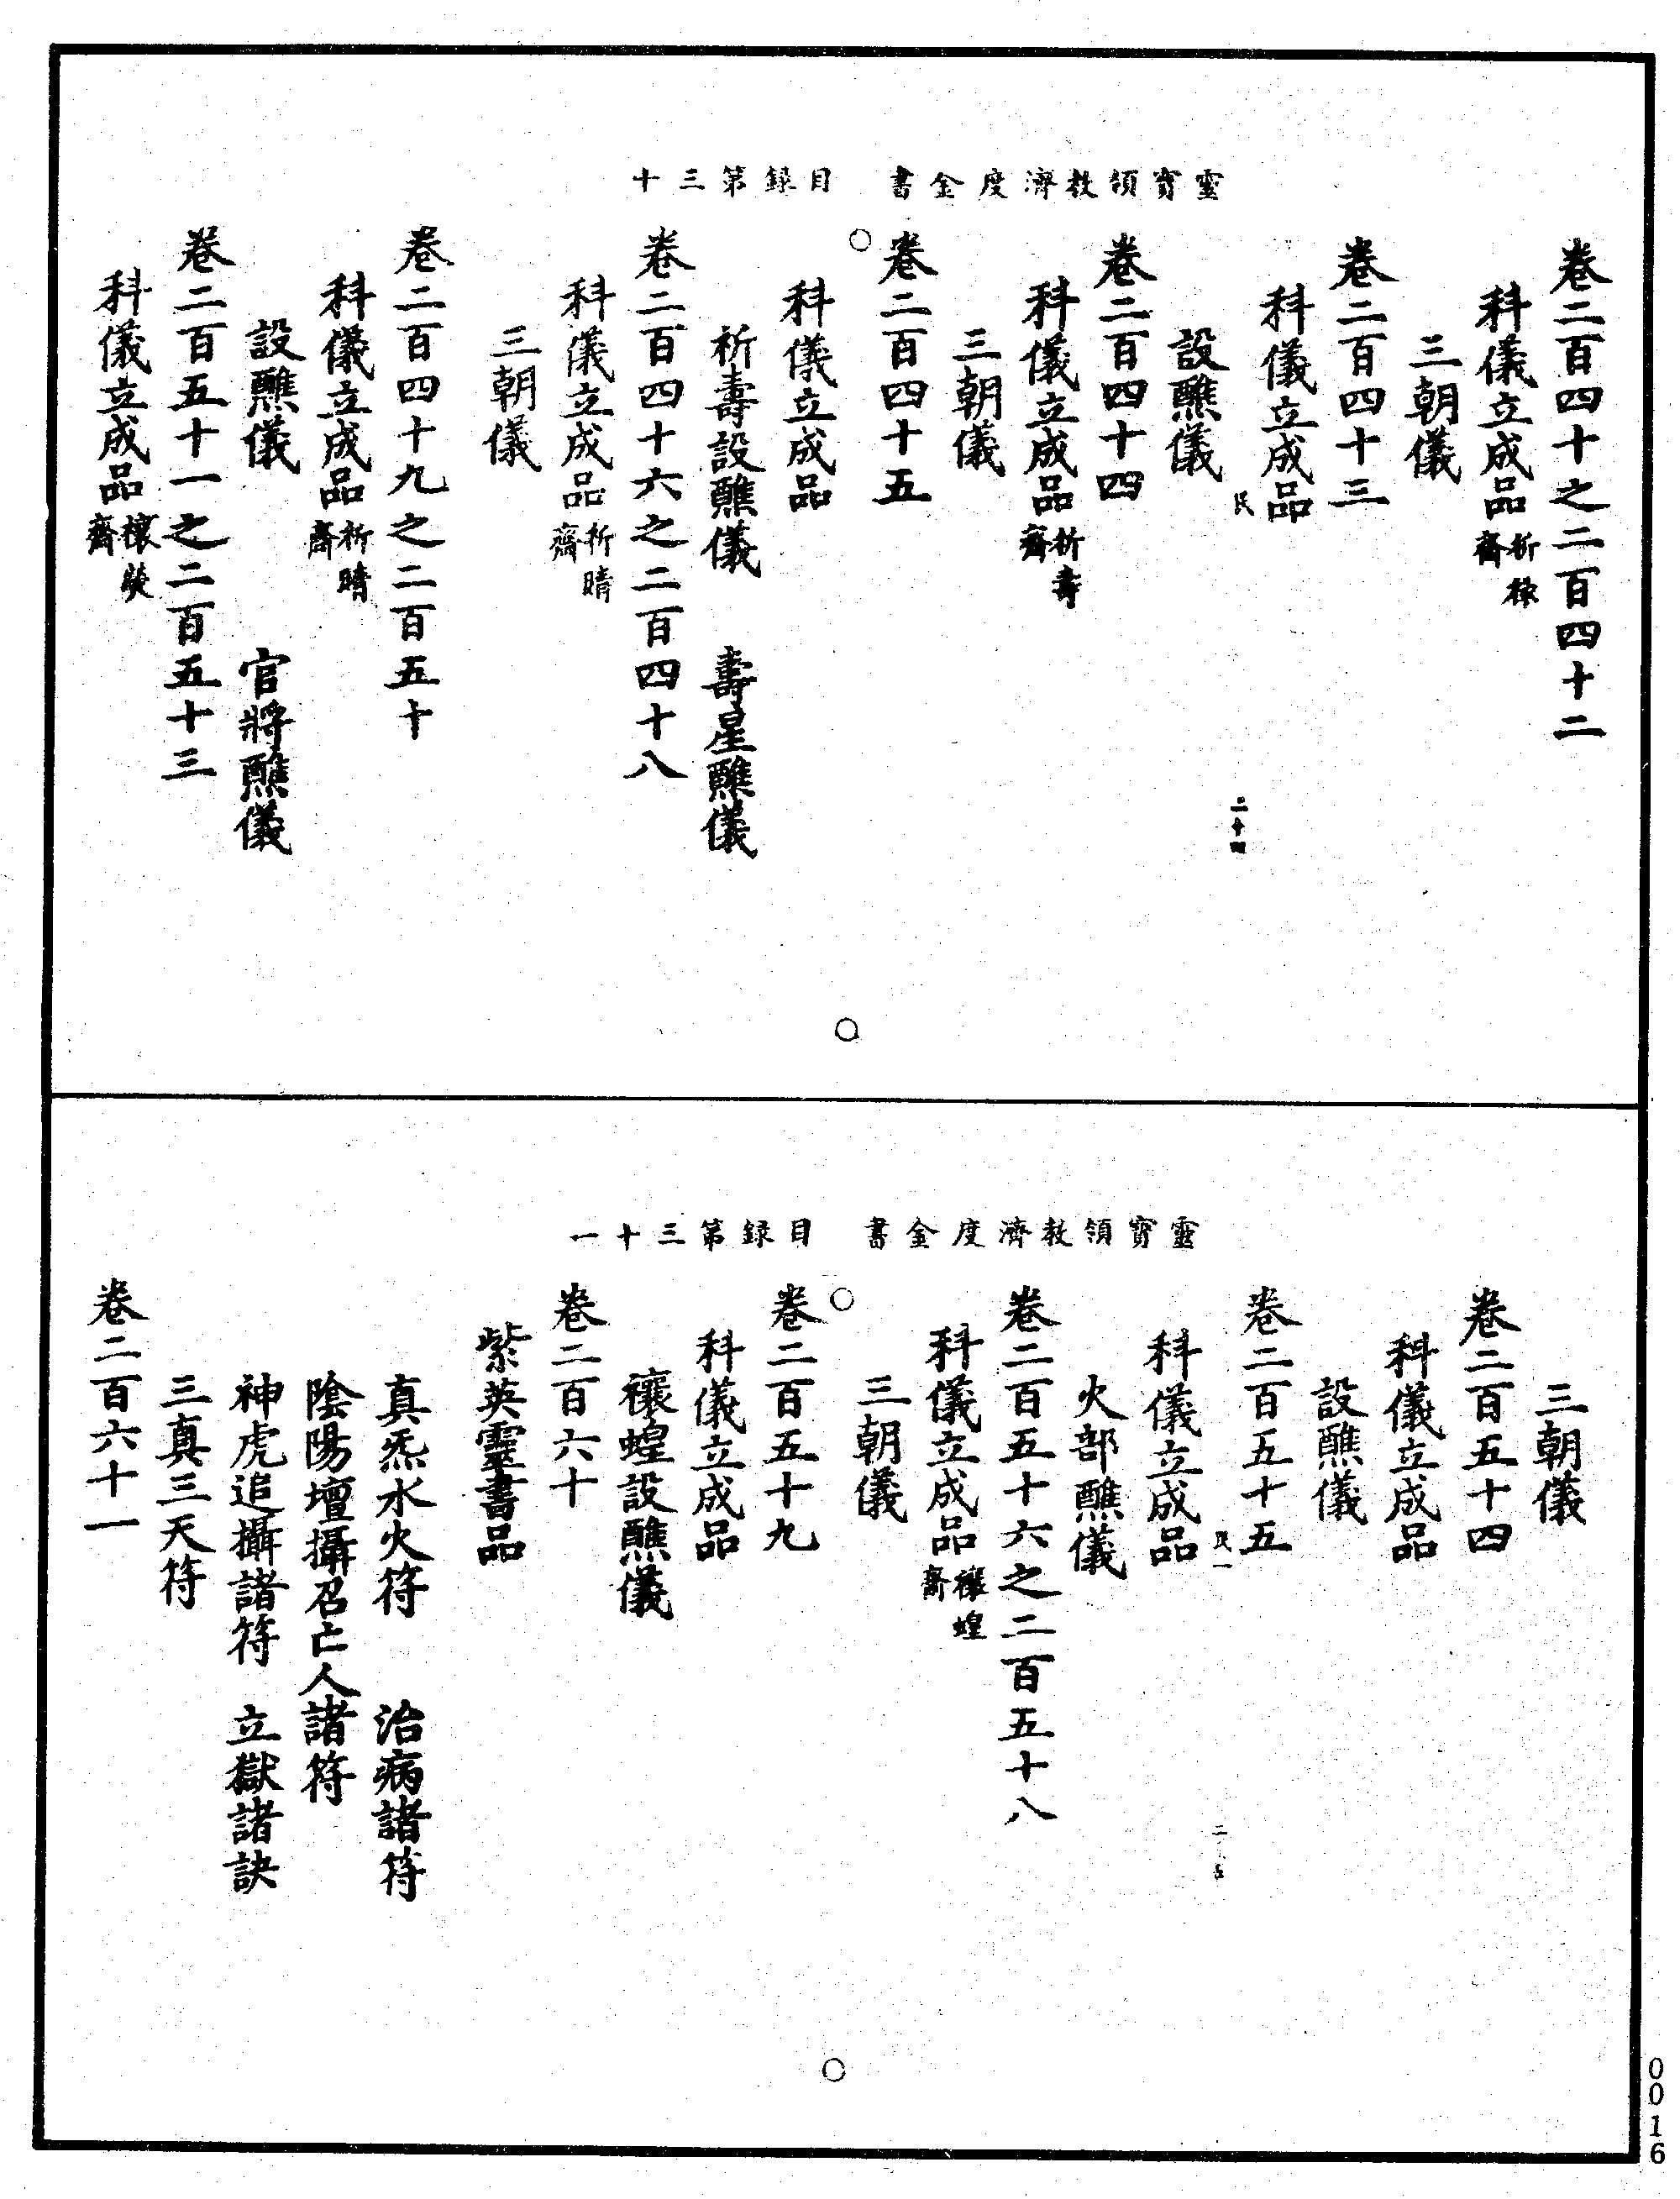 靈寶領教濟度金書　目録第三十
卷二百四十之二百四十二
科儀立成品祈祿齋
三朝儀
卷二百四十三
科儀立成品
民
二十四
設醮儀
卷二百四十四
科儀立成品祈壽齋
三朝儀
卷二百四十五
科儀立成品
祈壽設醮儀　壽星醮儀
卷二百四十六之二百四十八
科儀立成品祈晴齋
三朝儀
卷二百四十九之二百五十
科儀立成品祈晴齋
設醮儀　官將醮儀
卷二百五十一之二百五十三
科儀立成品禳熒齋
靈寶領教濟度金書　目録第三十一
三朝儀
卷二百五十四
科儀立成品
設醮儀
卷二百五十五
民一
二五
科儀立成品
火部醮儀
卷二百五十六之二百五十八
科儀立成品禳蝗齋
三朝儀
卷二百五十九
科儀立成品
禳蝗設醮儀
卷二百六十
紫英靈書品
真炁水火符　治病諸符
陰陽壇攝召亡人諸符
神虎追攝諸符　立獄諸訣
三真三天符
卷二百六十一
0016